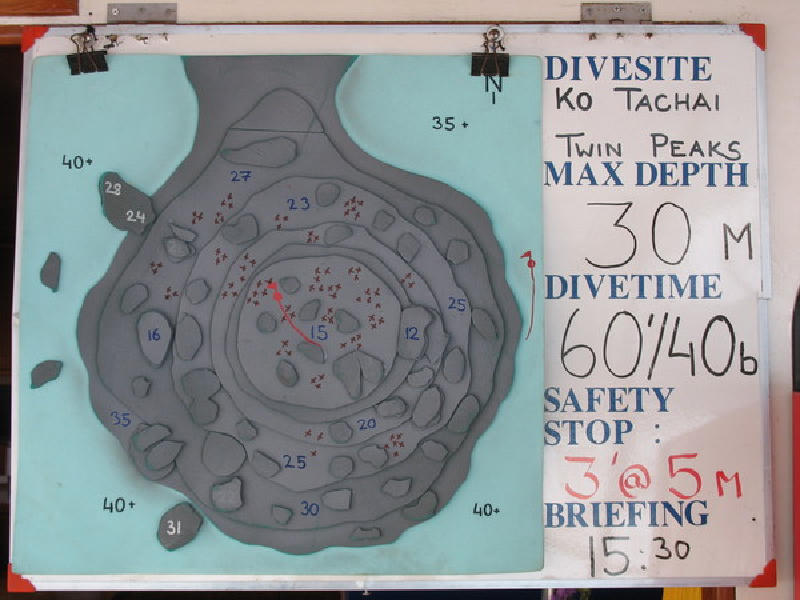 N
35+
40+
28
24
27
23
25
16
15
12
35
20
25
30
40+
31
40+
DIVESITE
KO TACHAI
TWIN PEAKS
MAX DEPTH
30 M
DIVETIME
60'/40b
SAFETY
STOP :
3'@ 5 M
BRIEFING
15:30